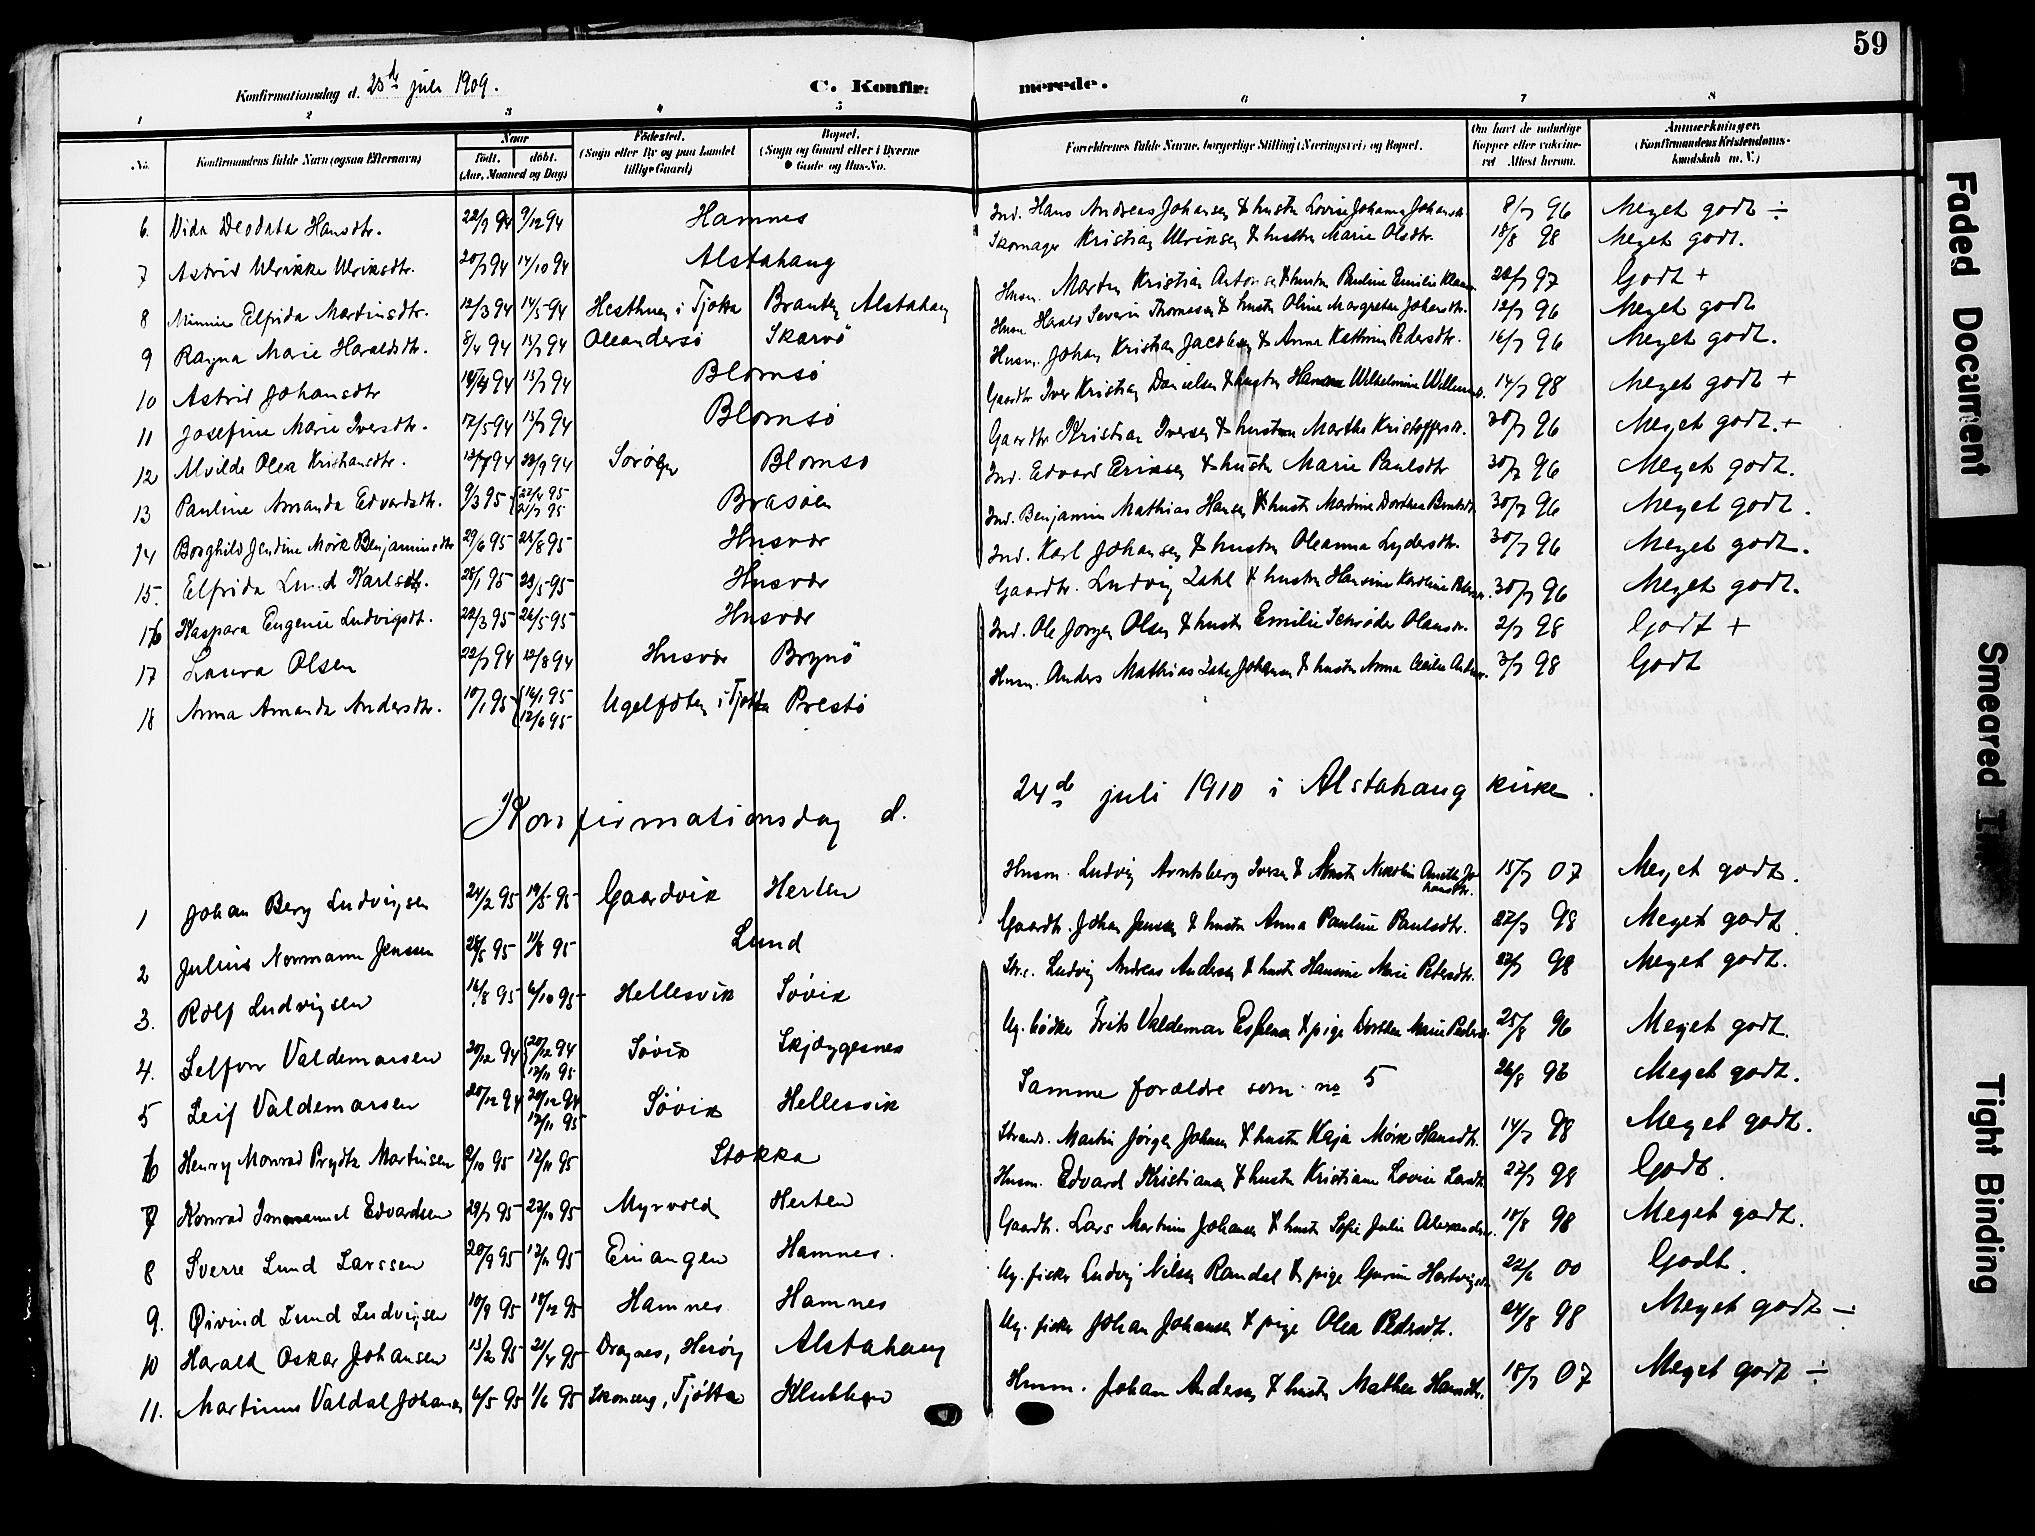 59
Konfirmationsdag d. 25de juli 1909.
C. Konfirmerede.
1 2 3 4 5 6 7 8
No. Konfirmandens fulde Navn (ogsaa Efternavn) Naar Født. døbt. (Aar, Maaned og Dag) Fødested. (Sogn eller By og paa Landet tillige Gaard) Bopæl. (Sogn og Gaard eller i Byerne Gade og Hus-No. Forældrenes fulde Navne, borgerlige Stilling (Næringsvei) og Bopæl. Om havt de naturlige Kopper eller vaccineret Attest herom. Anmærkninger. (Konfirmandens Kristendomskundskab m. V.)
6. Vida Deodata Hansdtr. 22/9 94 9/12 94 Hamnes Ind. Hans Andreas Johansen & hustru Lovise Johanna Johansdtr. 8/7 96 Meget godt ÷
7 Astrid Ulrikke Ulriksdtr. 20/7 94 14/10 94 Alstahaug Skomager Kristian Ulriksen & hustru Marie Olsdtr. 18/8 98 Meget godt.
8 Minnie Elfrida Martinsdtr. 12/3 94 14/5 94 i Tjøtta Alstahaug Husm. Martin Kristian & hustru Pauline Emilie 97 Godt +
9 Ragna Marie Haraldsdtr. 8/4 94 15/7 94 Oleandersø Skarvø Husm. Harald Severin Thomesen & hustru Oline Margrethe Johansdtr. 12/7 96 Meget godt
10 Astrid Johansdtr 94 15/7 94 Blomsø Husm. Johan Kristian Jacobsen & Anna Kathrine Pedersdtr. 16/7 96 Meget godt.
11 Josefine Marie Iversdtr. 17/5 94 15/7 94 Blomsø Gaardbr. Iver Kristian Danielsen & hustru Wilhelmine 14/7 98 Meget godt +
12 Alvilde Olea Kristiansdtr. 94 23/9 94 Blomsø Gaardbr. Kristian Iversen & hustru Martha Kristoffersdtr. 30/7 96 Meget godt. +
13 Pauline Amanda Edvardsdtr. 9/3 95 22/4 95 21/7 95 Brasøen Ind. Edvard Eriksen & hustru Marie Paulsdtr 30/7 96 Meget godt.
14 Borghild Jendine Mørk Benjaminsdtr 29/6 95 25/8 95 Husvær Ind. Benjamin Mathias Hansen & hustru Martine Dorthea 30/7 96 Meget godt.
15. Elfrida Lund Karlsdtr. 28/1 95 23/5 95 Husvær Ind. Karl Johansen & hustru Oleanna Lydersdtr. 30/7 96 Meget godt.
16 Kaspara Eugenie Ludvigsdt. 22/3 95 26/5 95 Husvær Gaardbr. Ludvig Zahl & hustru Hansine Karoline 30/7 96 Meget godt.
17 Laura Olsen 22/7 94 12/8 94 Husvær Brynø Ind. Ole Jørgen Olsen & hustru Emilie Schrøder 2/7 98 Godt +
18 Anna Amanda Andersdtr. 10/1 95 16/1 95 12/6 95 i Tjøtta Prestø Husm. Anders Mathias Johansen & hustru Anna Cecilie 3/7 98 Godt
Konfirmationsdag d. 24de juli 1910 i Alstahaug kirke.
1 Johan Berg Ludvigsen 24/2 95 19/5 95 Gaardvik Herten Husm. Ludvig Arntsberg Iversen & hustru Johansdtr. 15/7 07 Meget godt.
2 Julius Normann Jenssen 28/5 95 11/8 95 Lund Gaardbr. Johan Jenssen & hustru Anna Pauline Paulsdtr. 27/7 98 Meget godt.
3. Rolf Ludvigsen 16/8 95 6/10 95 Hellesvik Søvik Ludvig Andreas Andersen & hustru Hansine Marie Petersdtr. 27/7 98 Meget godt.
4. Selfow Valdemarsen 20/12 94 20/12 94 17/11 95 Søvik Skjæggesnes Ug. bødker Frits Valdemar Espensen & pige Dorthea Marie 25/8 96 Meget godt.
5 Leif Valdemarsen 20/12 94 20/12 94 17/11 95 Søvik Hellesvik Samme forældre som no 5 26/8 96 Meget godt.
6 Henry Monrad Prydtz Martinsen 2/10 95 17/11 95 Stokka Strands. Martin Jørgen Johnsen & hustru Kaja Mørk Hansdtr. 14/7 98 Meget godt.
7 Konrad Immanuel Edvardsen 29/7 95 27/10 95 Myrvold Herten Husm. Edvard Kristiansen & hustru Kristiane Lovise Larsdtr. 27/7 98 Godt.
8 Sverre Lund Larssen 20/9 95 17/11 95 Einangen Hamnes. Gaardb. Lars Martinus Johansen & hustru Sofie Julie 18/8 98 Meget godt.
9. Øivind Lund Ludvigsen 10/9 95 18/12 95 Hamnes Hamnes Ug. fisker Ludvig Nilsen Randal & pige Gurine Hartvigsdtr. 22/6 00 Godt.
10 Harald Oskar Johansen 13/2 95 21/4 95 Dragnes, Herøy Alstahaug Ug. fisker Johan Johansen & pige Olea Pedersdtr. 24/8 98 Meget godt ÷
11. Martinus Valdal Johansen 6/5 95 1/6 95 Skonseng, Tjøtta Klubben Husm. Johan Andersen & hustru Mathea Hansdtr. 18/7 07 Meget godt ÷
Faded Document
Smeared Ink
Tight Binding